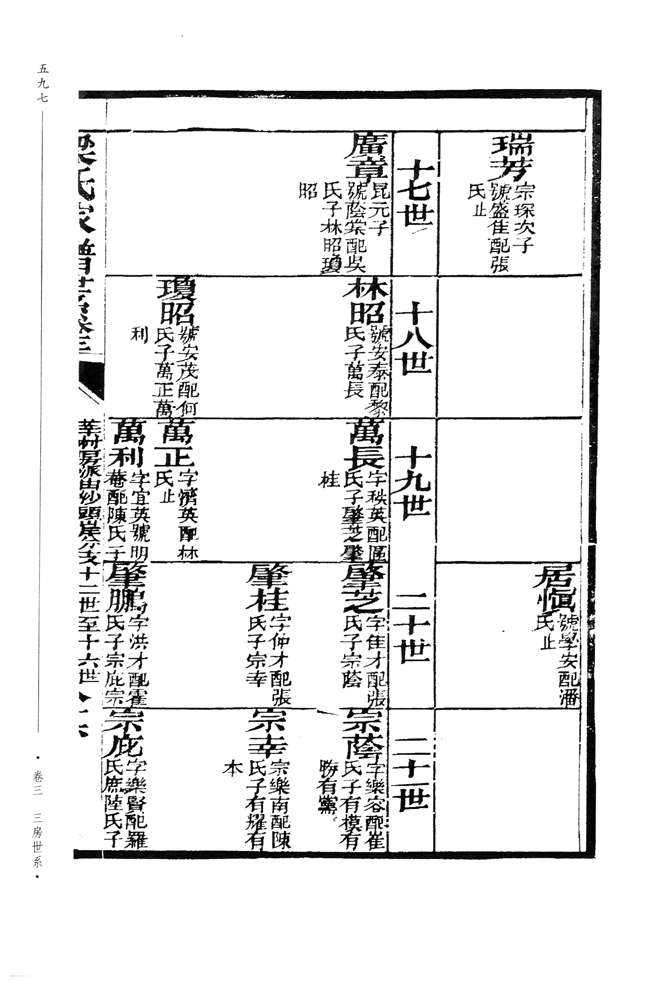 五九七
卷三　三房世系
瑞芳
宗琛次子
號盛隹配張
氏止
居慎
號學安配潘
氏止
十七世
十八世
十九世
二十世
二十一世
廣章
昆元子
號蔭棠配吳
氏子林昭瓊
昭
林昭
號安泰配黎
氏子萬長
瓊昭
號安茂配何
氏子萬正萬
利
萬長
字秩英配區
氏子肇芝肇
桂
萬正
字濟英配林
氏止
萬利
字宜英號明
菴配陳氏子
肇芝
字隹才配張
氏子宗蔭
肇桂
字仲才配張
氏子宗幸
肇鵬
字洪才配霍
氏子宗庇宗
宗蔭
字樂容配崔
氏子有模有
勝有黨
宗幸
宗樂南配陳
氏子有耀有
本
宗庇
字樂賢配羅
氏庶陸氏子
梁氏家譜世系卷三
房派由沙頭岸分支十二世至十六世